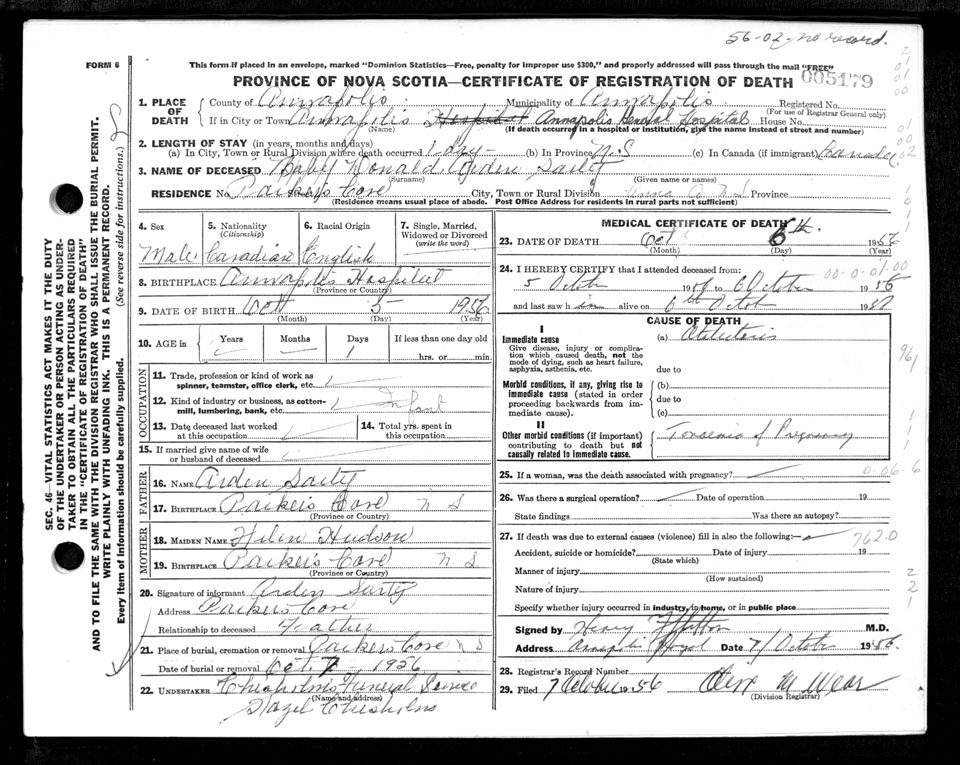 56-02-no record.
FORM 6
This form if placed in an envelope, marked "Dominion Statistics—Free, penalty for improper use $300," and properly addressed will pass through the mail "FREE"
PROVINCE OF NOVA SCOTIA—CERTIFICATE OF REGISTRATION OF DEATH 005179
1. PLACE OF DEATH
County of Annapolis. Municipality of Annapolis. Registered No.
(For use of Registrar General only)
If in City or Town Annapolis Hospital Annapolis General Hospital House No.
(Name) (If death occurred in a hospital or institution, give the name instead of street and number)
2. LENGTH OF STAY (in years, months and days)
(a) In City, Town or Rural Division where death occurred 1 day - (b) In Province N.S (c) In Canada (if immigrant) Canada
3. NAME OF DECEASED Baby Donald Arden Sarty
(Surname) (Given name or names)
RESIDENCE No. Parker's Cove City, Town or Rural Division Anna Co N S Province
(Residence means usual place of abode. Post Office Address for residents in rural parts not sufficient)
4. Sex
5. Nationality
(Citizenship)
6. Racial Origin
7. Single, Married, Widowed or Divorced
(write the word)
Male Canadian English
8. BIRTHPLACE Annapolis Hospital
(Province or Country)
9. DATE OF BIRTH Oct 5 1956
(Month) (Day) (Year)
10. AGE in
Years Months Days If less than one day old
1 hrs. or min.
OCCUPATION
11. Trade, profession or kind of work as spinner, teamster, office clerk, etc.
12. Kind of industry or business, as cotton-mill, lumbering, bank, etc. Infant
13. Date deceased last worked at this occupation
14. Total yrs. spent in this occupation
15. If married give name of wife or husband of deceased
FATHER
16. NAME Arden Sarty
17. BIRTHPLACE Parkers Cove N S
(Province or Country)
MOTHER
18. MAIDEN NAME Helen Hudson
19. BIRTHPLACE Parker's Cove N S
(Province or Country)
20. Signature of informant Arden Sarty
Address Parkers Cove
Relationship to deceased Father
21. Place of burial, cremation or removal Parkers Cove N S
Date of burial or removal Oct. 7, 1956
22. UNDERTAKER Chisholms Funeral Service
(Name and address)
Hazel Chisholm
MEDICAL CERTIFICATE OF DEATH
23. DATE OF DEATH Oct 6th. 1956
(Month) (Day) (Year)
24. I HEREBY CERTIFY that I attended deceased from:
5 October 1956 to 6 October 1956
and last saw him alive on 6th October 195
CAUSE OF DEATH
I
Immediate cause
Give disease, injury or complication which caused death, not the mode of dying, such as heart failure, asphyxia, asthenia, etc.
(a) Atelectasis
due to
Morbid conditions, if any, giving rise to immediate cause (stated in order proceeding backwards from immediate cause).
(b)
due to
(c)
II
Other morbid conditions (if important) contributing to death but not causally related to immediate cause.
Toxaemia of Pregnancy
25. If a woman, was the death associated with pregnancy?
26. Was there a surgical operation? Date of operation 19
State findings Was there an autopsy?
27. If death was due to external causes (violence) fill in also the following:— 762.0
Accident, suicide or homicide? Date of injury 19
(State which)
Manner of injury
(How sustained)
Nature of injury
Specify whether injury occurred in industry, in home, or in public place
Signed by Henry M.D.
Address Annapolis Royal Date 7/October 1956
28. Registrar's Record Number
29. Filed 7 October 1956
(Division Registrar)
SEC. 46—VITAL STATISTICS ACT MAKES IT THE DUTY
OF THE UNDERTAKER OR PERSON ACTING AS UNDER-
TAKER TO OBTAIN ALL THE PARTICULARS REQUIRED
IN THE "CERTIFICATE OF REGISTRATION OF DEATH"
AND TO FILE THE SAME WITH THE DIVISION REGISTRAR WHO SHALL ISSUE THE BURIAL PERMIT.
WRITE PLAINLY WITH UNFADING INK. THIS IS A PERMANENT RECORD.
Every item of information should be carefully supplied. (See reverse side for instructions.)